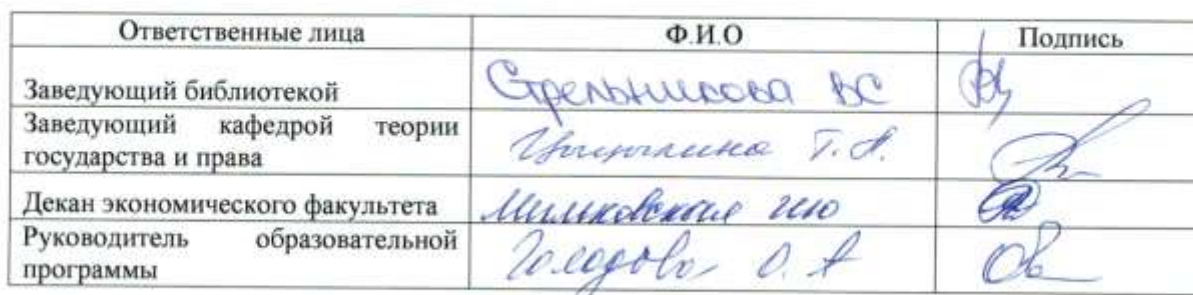 Ответственные лица Ф.И.О Подпись
Заведующий библиотекой Стрельникова ВС
Заведующий кафедрой теории
государства и права Т.А.
Декан экономического факультета
Руководитель образовательной
программы Голодова О.А